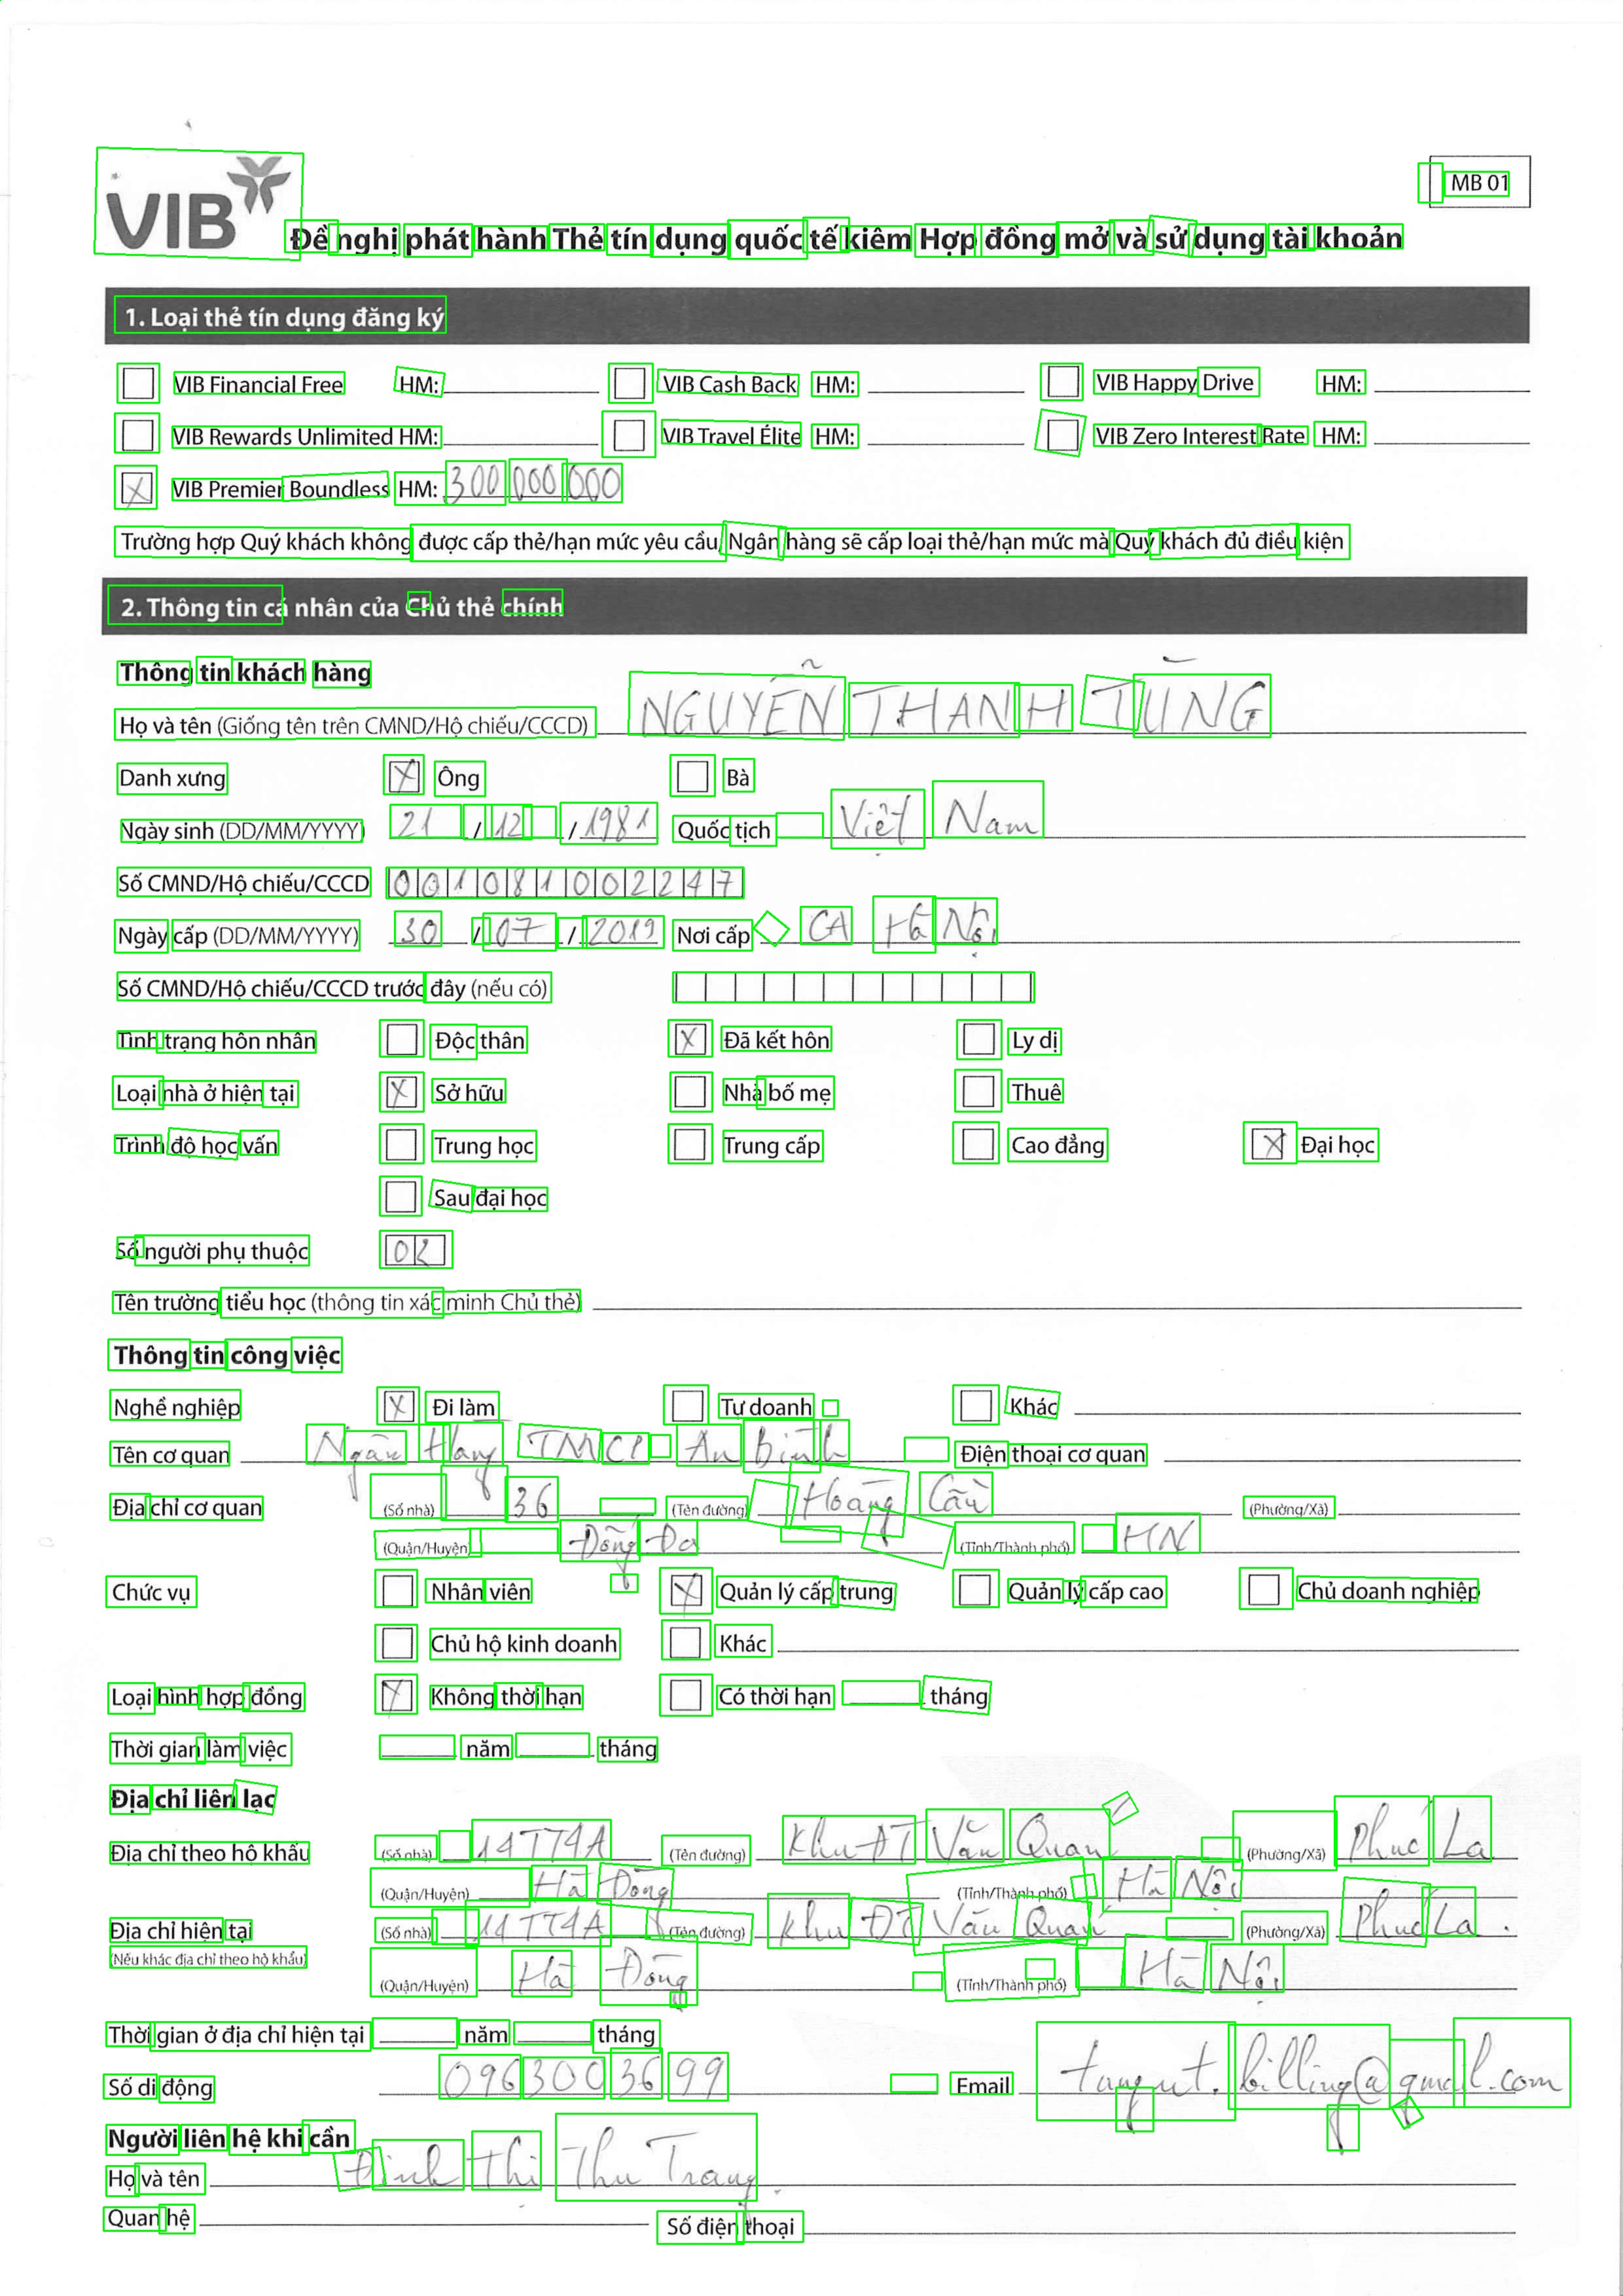 VIB
MB 01
Đề nghị phát hành Thẻ tín dụng quốc tế kiêm Hợp đồng mở và sử dụng tài khoản
1. Loại thẻ tín dụng đăng ký
VIB Financial Free HM: VIB Cash Back HM: VIB Happy Drive HM:
VIB Rewards Unlimited HM: VIB Travel Élite HM: VIB Zero Interest Rate HM:
X VIB Premier Boundless HM: 300 000 000
Trường hợp Quý khách không được cấp thẻ/hạn mức yêu cầu, Ngân hàng sẽ cấp loại thẻ/hạn mức mà Quý khách đủ điều kiện
2. Thông tin cá nhân của Chủ thẻ chính
Thông tin khách hàng
Họ và tên (Giống tên trên CMND/Hộ chiếu/CCCD) NGUYỄN THANH TÙNG
Danh xưng X Ông Bà
Ngày sinh (DD/MM/YYYY) 21 / 12 / 1981 Quốc tịch Việt Nam
Số CMND/Hộ chiếu/CCCD 001081002247
Ngày cấp (DD/MM/YYYY) 30 / 07 / 2019 Nơi cấp CA Hà Nội
Số CMND/Hộ chiếu/CCCD trước đây (nếu có)
Tình trạng hôn nhân Độc thân X Đã kết hôn Ly dị
Loại nhà ở hiện tại X Sở hữu Nhà bố mẹ Thuê
Trình độ học vấn Trung học Trung cấp Cao đẳng X Đại học
Sau đại học
Số người phụ thuộc 02
Tên trường tiểu học (thông tin xác minh Chủ thẻ)
Thông tin công việc
Nghề nghiệp X Đi làm Tự doanh Khác
Tên cơ quan Ngân Hàng TMCP An Bình Điện thoại cơ quan
Địa chỉ cơ quan (Số nhà) 36 (Tên đường) Hoàng Cầu (Phường/Xã)
(Quận/Huyện) Đống Đa (Tỉnh/Thành phố) HN
Chức vụ Nhân viên X Quản lý cấp trung Quản lý cấp cao Chủ doanh nghiệp
Chủ hộ kinh doanh Khác
Loại hình hợp đồng X Không thời hạn Có thời hạn tháng
Thời gian làm việc năm tháng
Địa chỉ liên lạc
Địa chỉ theo hộ khẩu (Số nhà) 14TT4A (Tên đường) Khu ĐT Văn Quán (Phường/Xã) Phúc La
(Quận/Huyện) Hà Đông (Tỉnh/Thành phố) Hà Nội
Địa chỉ hiện tại (Số nhà) 14TT4A (Tên đường) Khu ĐT Văn Quán (Phường/Xã) Phúc La.
(Nếu khác địa chỉ theo hộ khẩu)
(Quận/Huyện) Hà Đông (Tỉnh/Thành phố) Hà Nội
Thời gian ở địa chỉ hiện tại năm tháng
Số di động 0963003699 Email tungnt.billing@gmail.com
Người liên hệ khi cần
Họ và tên Đinh Thị Thu Trang
Quan hệ Số điện thoại